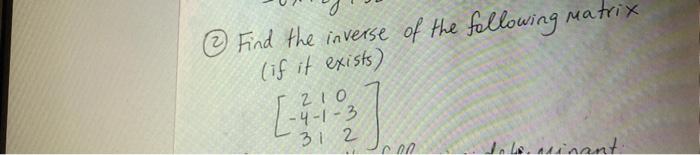 ② Find the inverse of the following matrix
(if it exists)
2 1 0
-4 -1 -3
3 1 2